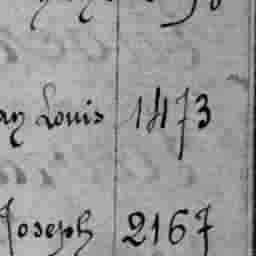 an Louis 1473
Joseph 2167